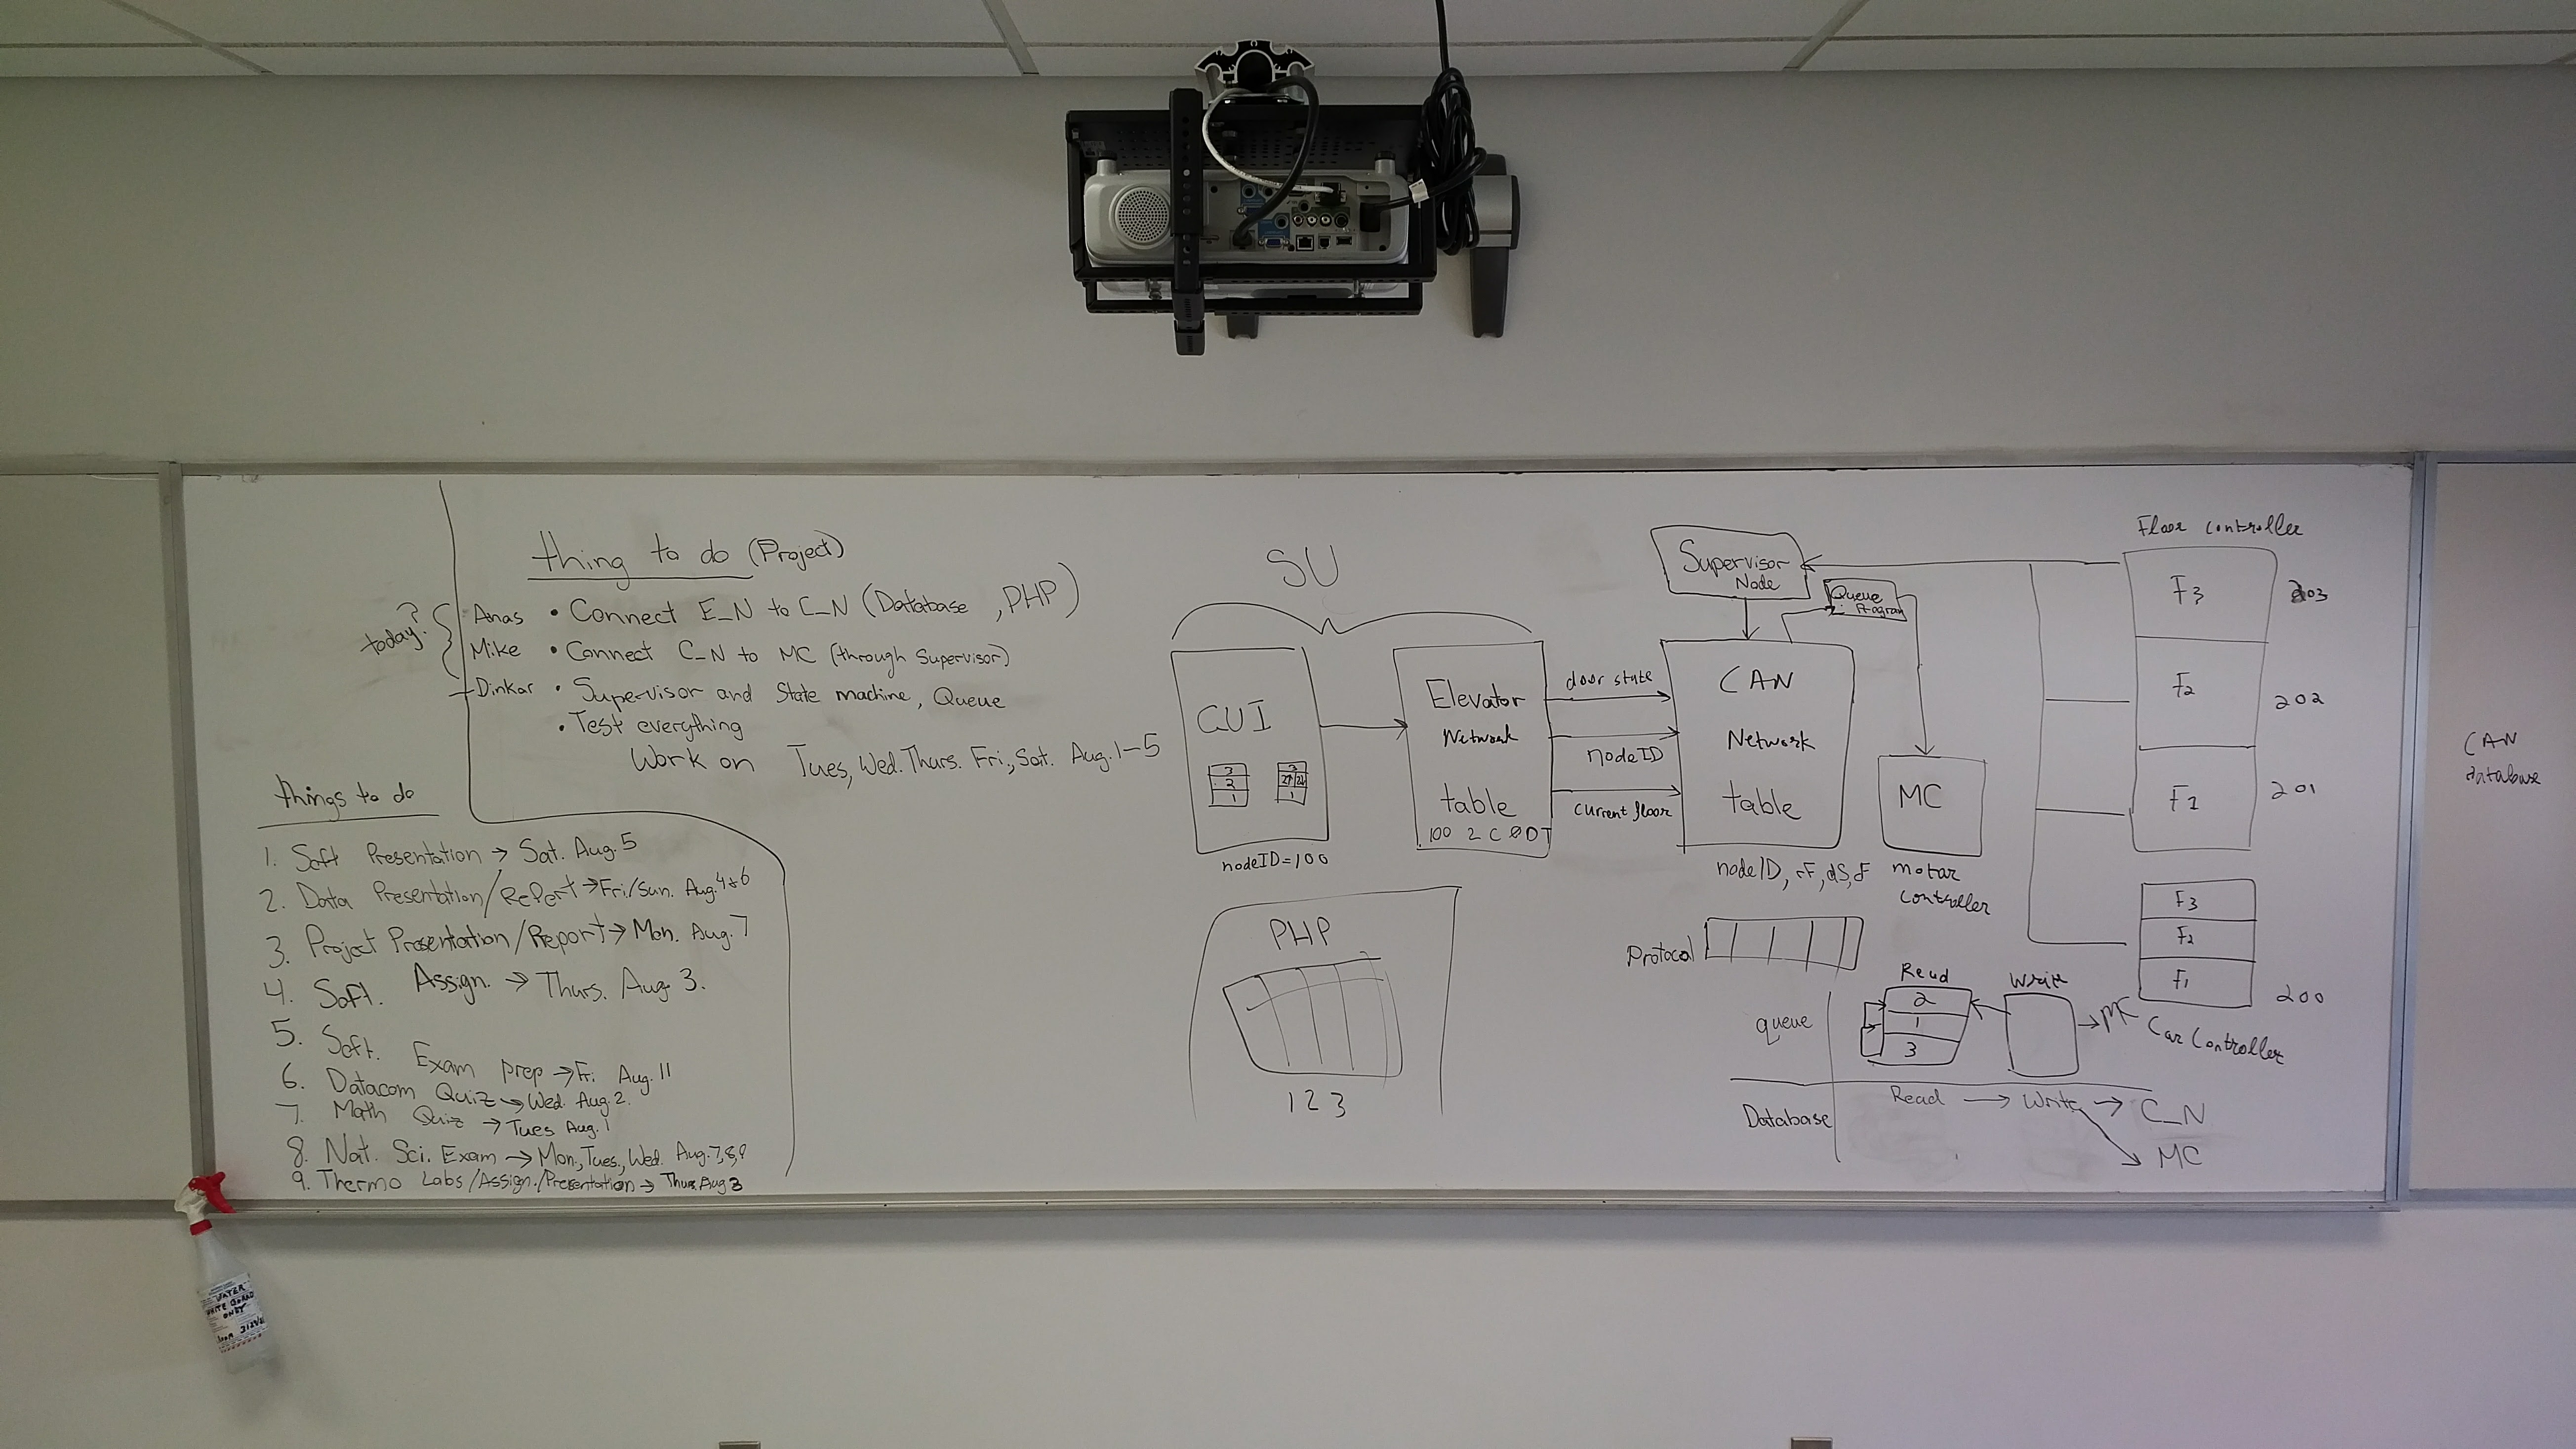 thing to do (Project)
today?
Anas • Connect E_N to C_N (Database, PHP)
Mike • Connect C_N to MC (through Supervisor)
Dinkar • Supervisor and State machine, Queue
• Test everything
Work on Tues, Wed. Thurs. Fri., Sat. Aug. 1-5
things to do
1. Soft Presentation → Sat. Aug. 5
2. Data Presentation/Report → Fri/Sun. Aug. 4 & 6
3. Project Presentation/Report → Mon. Aug. 7
4. Soft. Assign. → Thurs. Aug 3.
5. Soft. Exam prep → Fri Aug. 11
6. Datacom Quiz → Wed. Aug. 2.
7. Math Quiz → Tues Aug. 1
8. Nat. Sci. Exam → Mon., Tues., Wed. Aug. 7,8,9
9. Thermo Labs/Assign./Presentation → Thur Aug 3
SU
GUI
3
2
1
3
1
nodeID=100
Elevator
Network
table
100 2 C
door state
nodeID
current floor
Supervisor
Node
Queue
Program
CAN
Network
table
nodeID, rF, dS, F
MC
motor
controller
Floor controller
F3
203
F2
202
F1
201
F3
F2
F1
200
Car Controller
PHP
1 2 3
Protocol
queue
Read
2
1
3
Write
→ MC
Database
Read → Write → C_N
MC
CAN
database
WATER
WHITE BOARD
ONLY